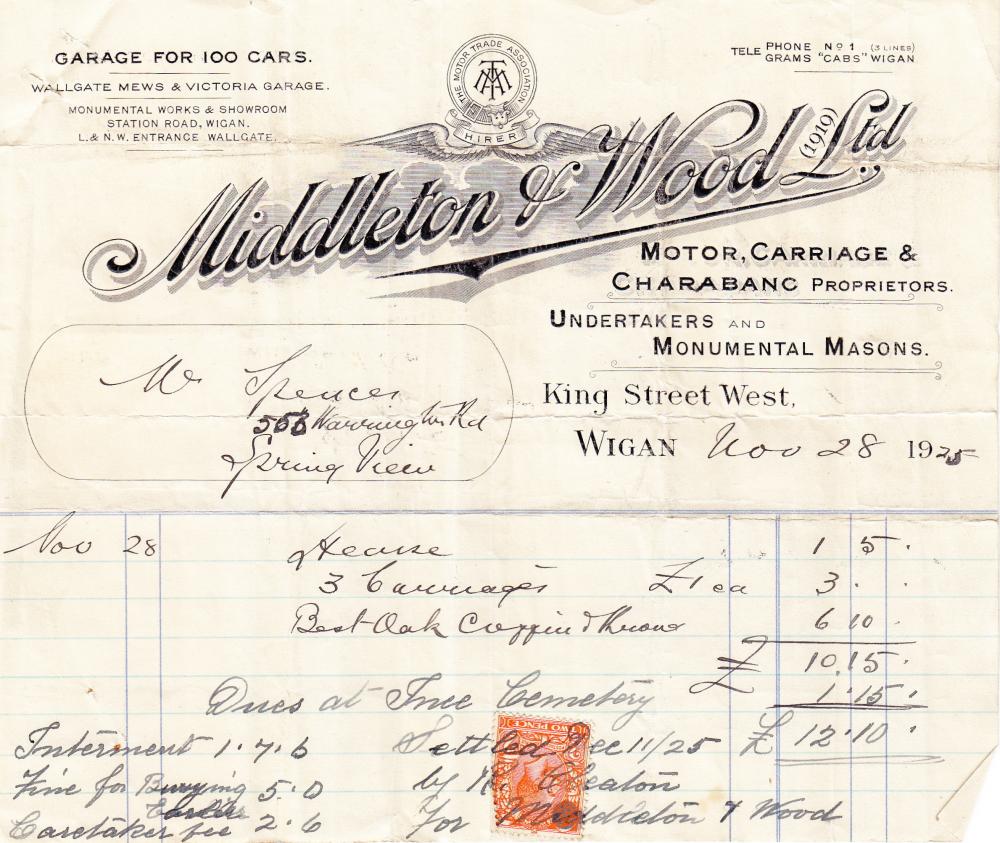 GARAGE FOR 100 CARS.
WALLGATE MEWS & VICTORIA GARAGE.
MONUMENTAL WORKS & SHOWROOM
STATION ROAD, WIGAN.
L. & N.W. ENTRANCE WALLGATE.
THE MOTOR TRADE ASSOCIATION
MTA
HIRER
TELE PHONE No 1 (3 LINES)
GRAMS "CABS" WIGAN
Middleton & Wood (1919) Ltd.
MOTOR, CARRIAGE &
CHARABANC PROPRIETORS.
UNDERTAKERS AND
MONUMENTAL MASONS.
King Street West,
WIGAN Nov 28 1925
Mr Spencer
Warrington Rd
Spring View
Nov 28 Hearse 1 5 .
3 Carriages £1 ea 3 . .
Best Oak Coffin & 6 10 .
£ 10.15 .
Dues at Ince Cemetery 1.15 .
£ 12.10 .
Interment 1.7.6
Fine for Burying Earlier 5.0
Caretaker fee 2.6
Settled Dec 11/25
by
For Middleton & Wood
TWO PENCE